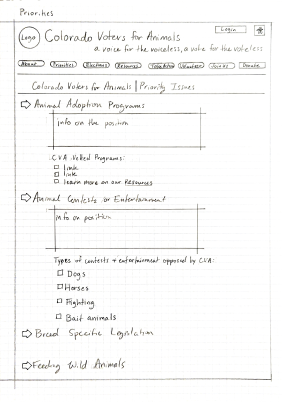 Priorities
Logo
Colorado Voters for Animals
Login
a voice for the voiceless, a vote for the voteless
About
Priorities
Elections
Resources
Take Action
Volunteer
Join Us
Donate
Colorado Voters for Animals | Priority Issues
Animal Adoption Programs
info on the position
CVA Vetted Programs:
link
link
learn more on our Resources
Animal Contests or Entertainment
info on position
Types of contests + entertainment opposed by CVA:
Dogs
Horses
Fighting
Bait animals
Breed Specific Legislation
Feeding Wild Animals